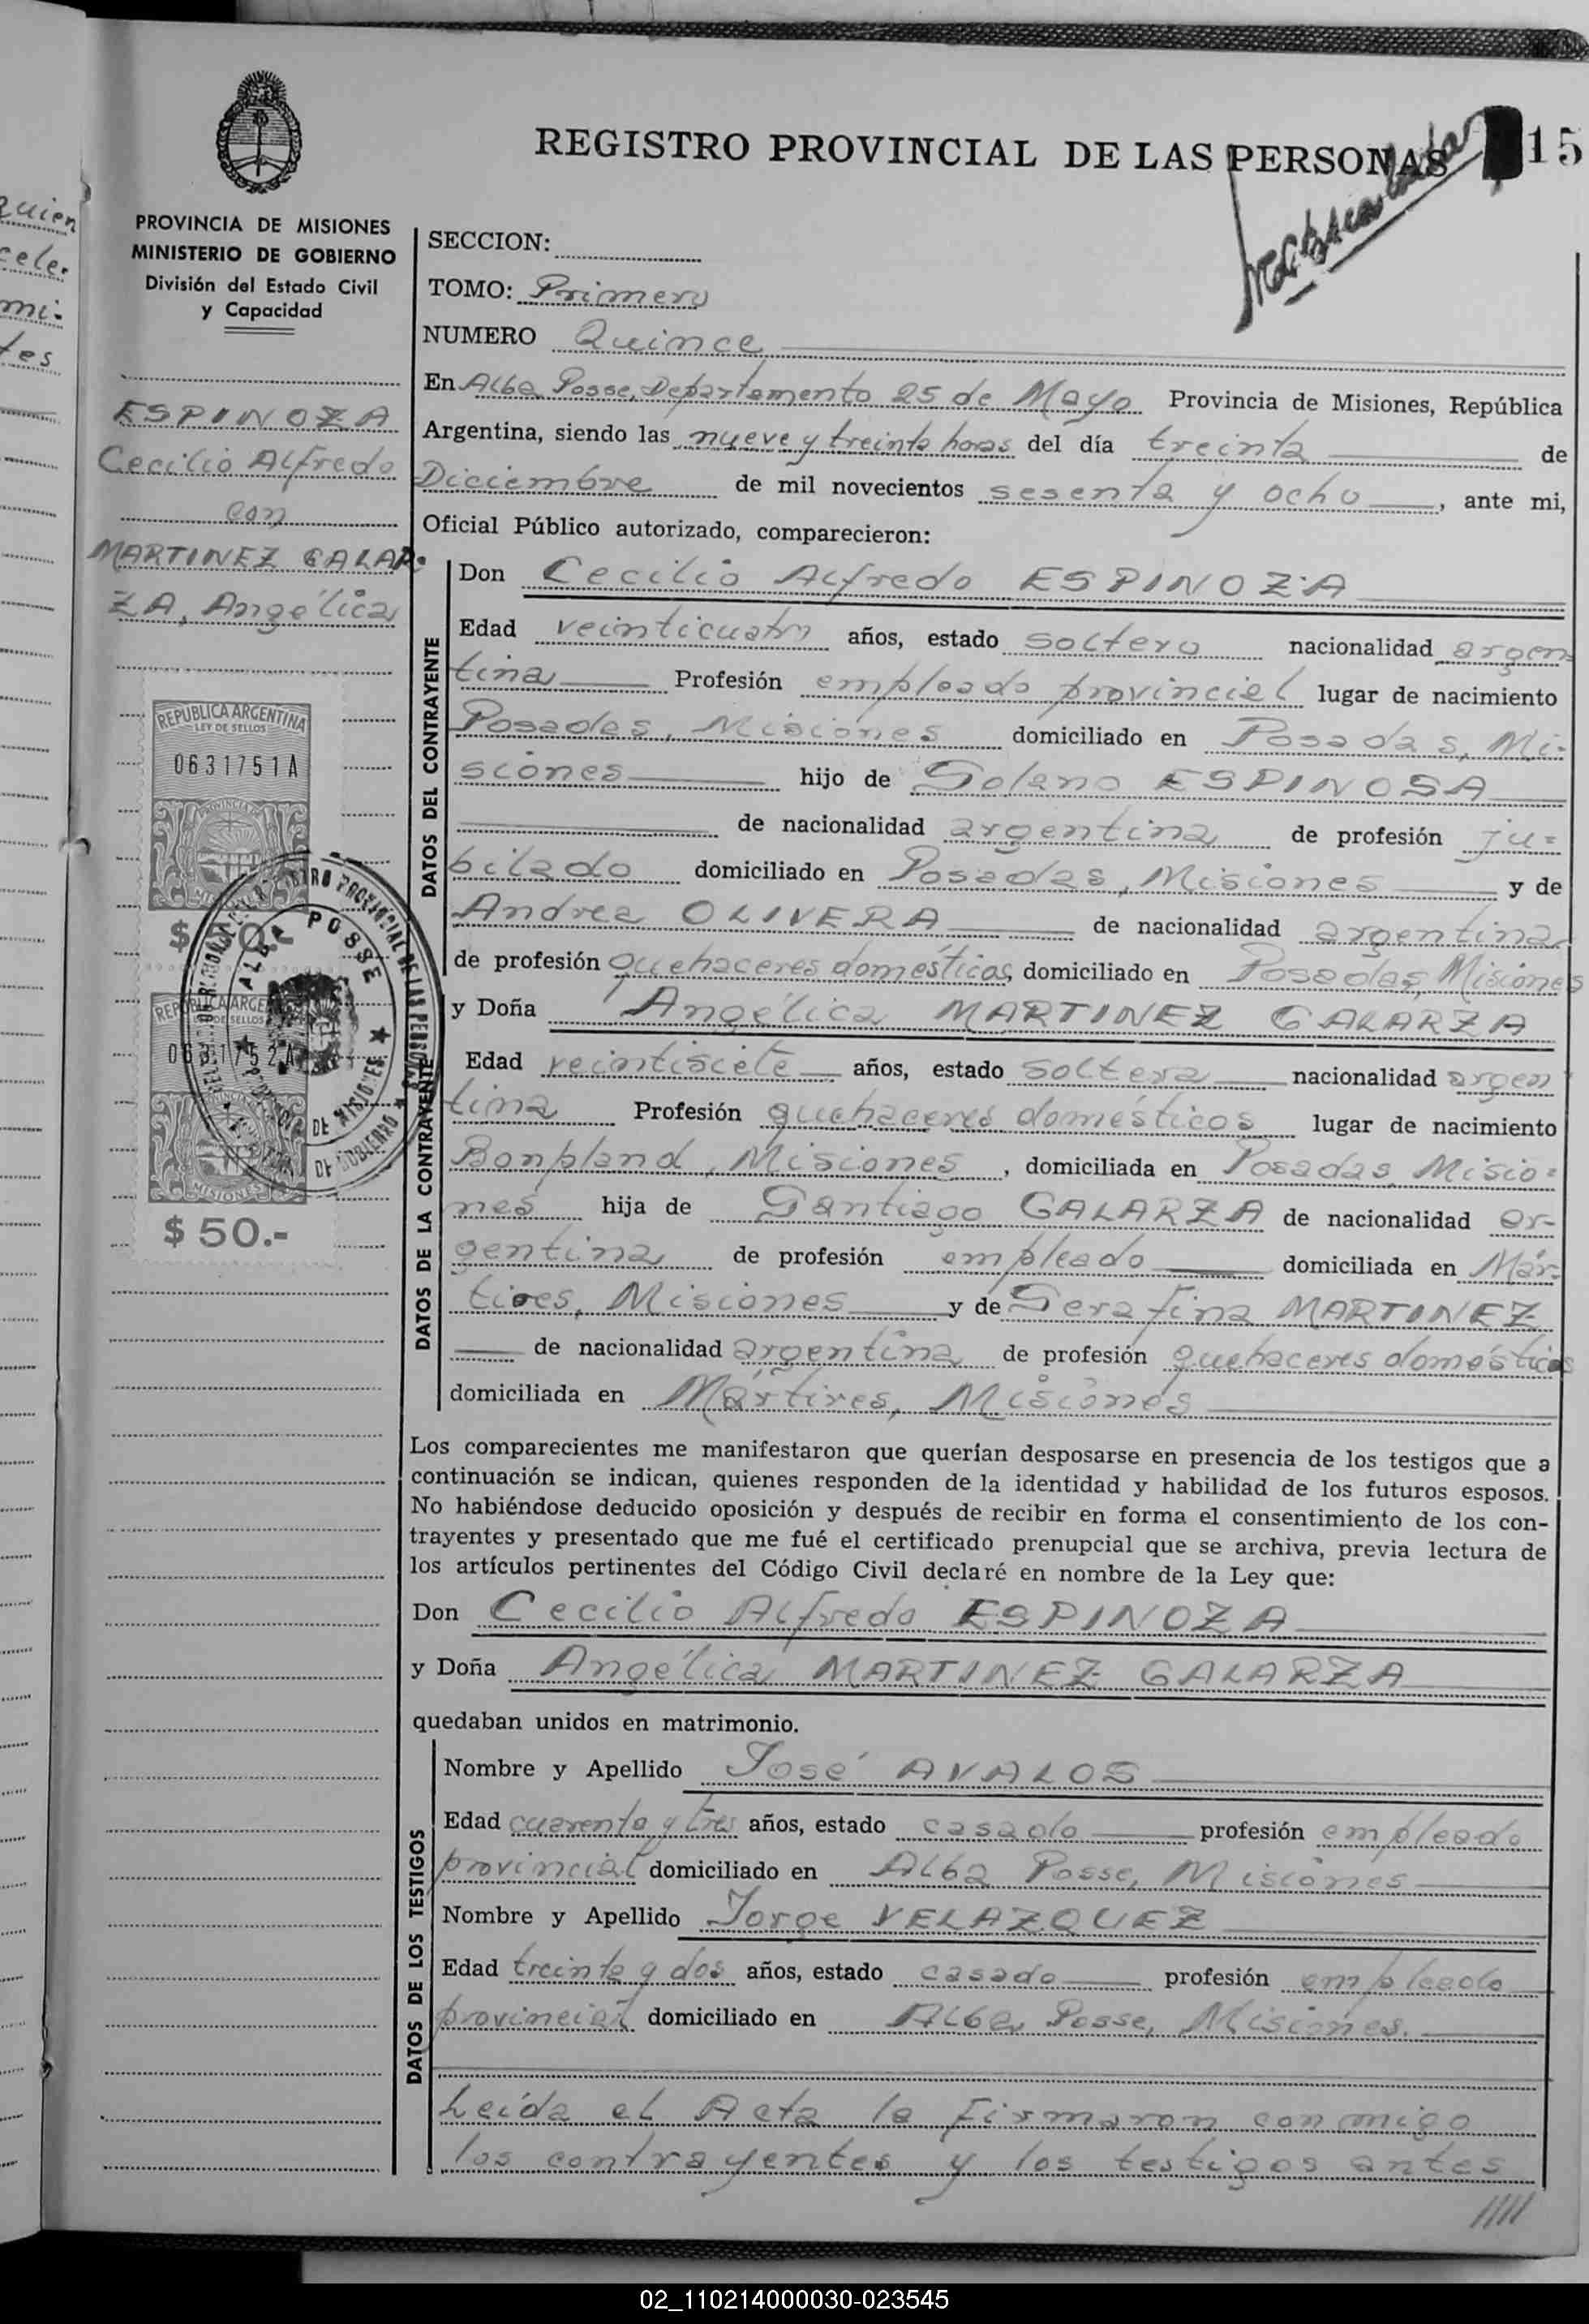 REGISTRO PROVINCIAL DE LAS PERSONAS
15
PROVINCIA DE MISIONES
MINISTERIO DE GOBIERNO
División del Estado Civil
y Capacidad
ESPINOZA
Cecilio Alfredo
con
MARTINEZ GALAR-
ZA, Angélica
REPUBLICA ARGENTINA
LEY DE SELLOS
0631751A
MISIONES
ALBA POSSE
LEY DE SELLOS
0631752A
MISIONES
$ 50.-
SECCION:
TOMO: Primero
NUMERO Quince
En Alba Posse, Departamento 25 de Mayo Provincia de Misiones, República
Argentina, siendo las nueve y treinta horas del día treinta de
Diciembre de mil novecientos sesenta y ocho, ante mi,
Oficial Público autorizado, comparecieron:
DATOS DEL CONTRAYENTE
Don Cecilio Alfredo ESPINOZA
Edad veinticuatro años, estado soltero nacionalidad argen
tina Profesión empleado provincial lugar de nacimiento
Posadas, Misiones domiciliado en Posadas, Mi-
siones hijo de Solano ESPINOSA
de nacionalidad argentina de profesión ju-
bilado domiciliado en Posadas, Misiones y de
Andrea OLIVERA de nacionalidad argentina
de profesión quehaceres domésticos, domiciliado en Posadas, Misiones
y Doña Angélica MARTINEZ GALARZA
DATOS DE LA CONTRAYENTE
Edad veintisiete años, estado soltera nacionalidad argen
tina Profesión quehaceres domésticos lugar de nacimiento
Bonpland, Misiones, domiciliada en Posadas, Misio-
nes hija de Santiago GALARZA de nacionalidad ar-
gentina de profesión empleado domiciliada en Már-
tires, Misiones y de Serafina MARTINEZ
de nacionalidad argentina de profesión quehaceres domésticos
domiciliada en Mártires, Misiones
Los comparecientes me manifestaron que querían desposarse en presencia de los testigos que a
continuación se indican, quienes responden de la identidad y habilidad de los futuros esposos.
No habiéndose deducido oposición y después de recibir en forma el consentimiento de los con-
trayentes y presentado que me fué el certificado prenupcial que se archiva, previa lectura de
los artículos pertinentes del Código Civil declaré en nombre de la Ley que:
Don Cecilio Alfredo ESPINOZA
y Doña Angélica MARTINEZ GALARZA
quedaban unidos en matrimonio.
DATOS DE LOS TESTIGOS
Nombre y Apellido José AVALOS
Edad cuarenta y tres años, estado casado profesión empleado
provincial domiciliado en Alba Posse, Misiones
Nombre y Apellido Jorge VELAZQUEZ
Edad treinta y dos años, estado casado profesión empleado
provincial domiciliado en Alba Posse, Misiones.
Leída el Acta la firmaron conmigo
los contrayentes y los testigos antes
/////
quien
cele-
mi-
tes
02_110214000030-023545